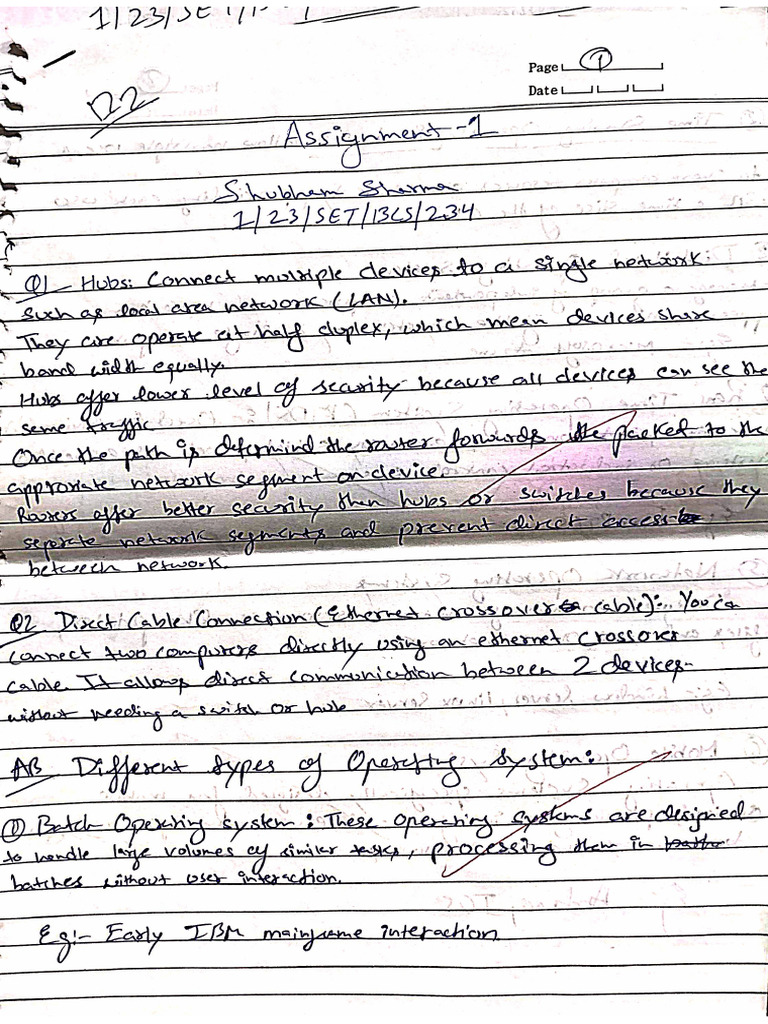 1/23/SET/13
Page 1
Date
D2
Assignment -1
Shubham Sharma
1/23/SET/BCS/234
Q1 Hubs: Connect multiple devices to a single network.
Such as local area network (LAN).
They are operate at half duplex, which mean devices share
band width equally.
Hubs offer lower level of security because all devices can see the
same traffic.
Once the path is determind the router forwards the packet to the
approriate network segment on device.
Routers offer better security then hubs or switches because they
seperate network segments and prevent direct access
between network.
Q2 Direct Cable Connection (Ethernet crossover cable):. You can
connect two computers directly using an ethernet crossover
cable. It allows direct communication between 2 devices
without needing a switch or hub
A3 Different types of Operating System:
① Batch Operating system: These operating systems are designed
to handle large volumes of similar tasks, processing them in
batches without user interaction.
Eg:- Early IBM mainframe interaction.